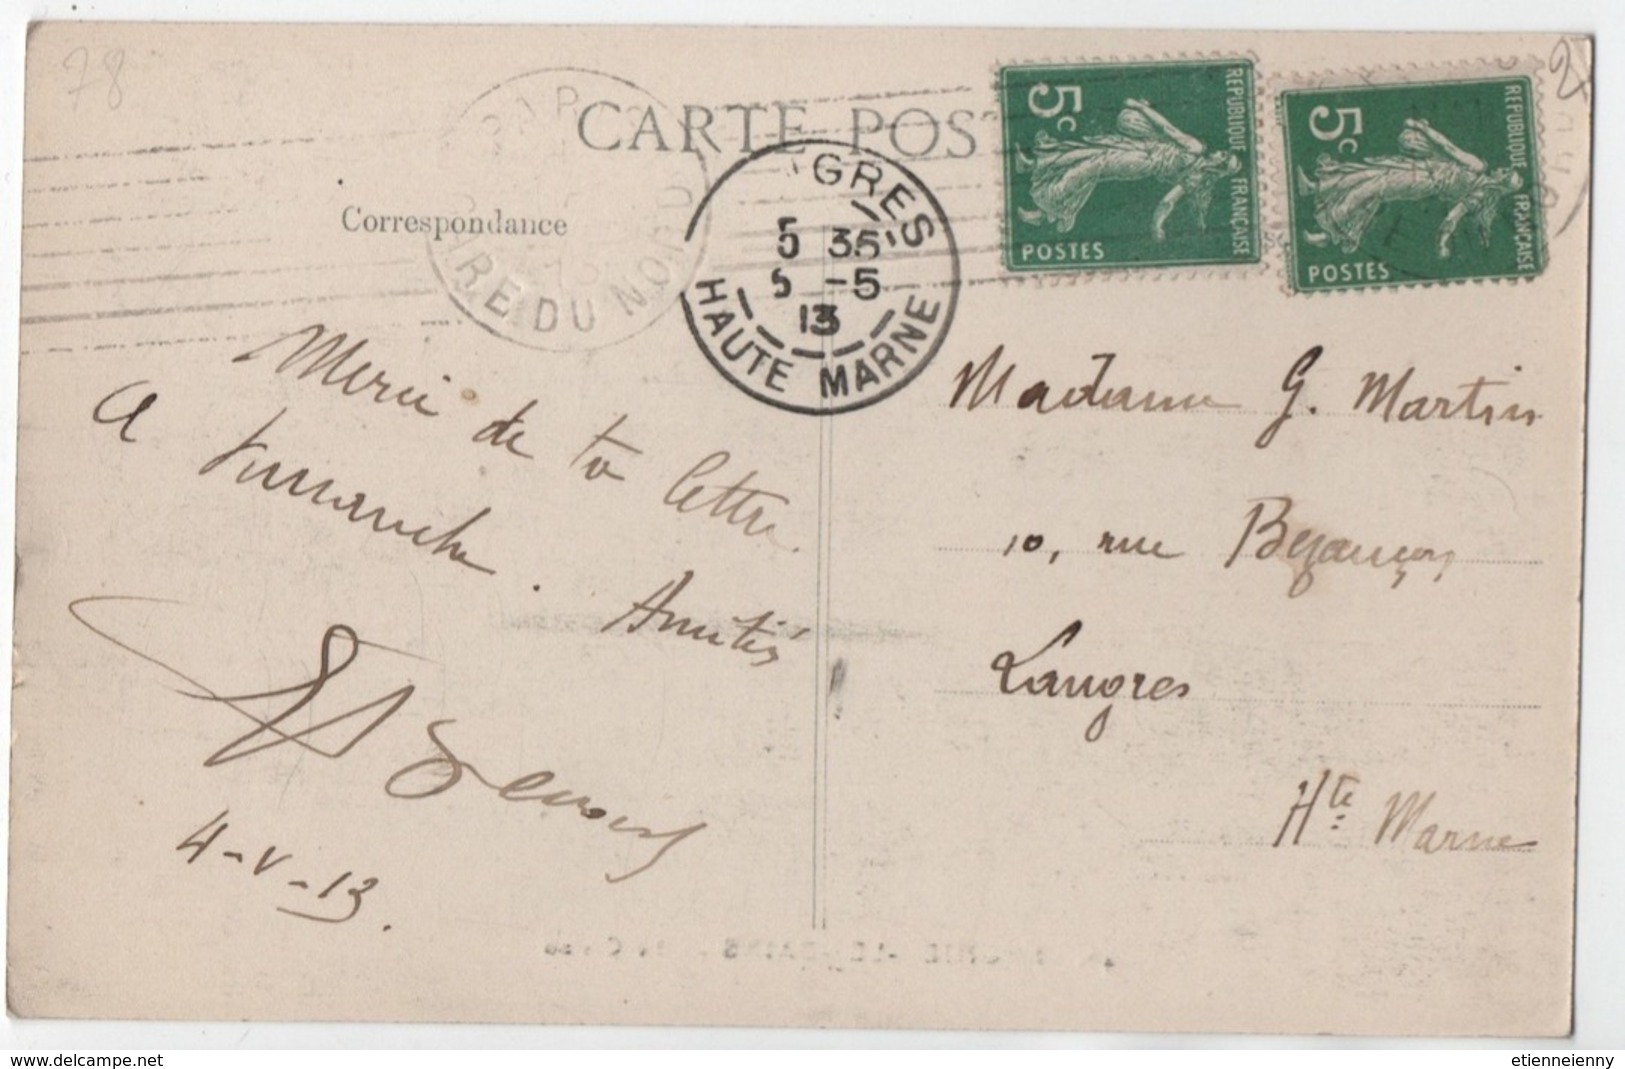 78
CARTE POST
Correspondance
PARIS
GARE DU NORD
13
GRES
5 35
5 -5
13
HAUTE MARNE
5c
REPUBLIQUE FRANÇAISE
POSTES
5c
REPUBLIQUE FRANÇAISE
POSTES
Merci de ta lettre.
A dimanche. Amitiés
4-V-13.
Madame G. Martin
10, rue Besançon,
Langres
Hte Marne
www.delcampe.net
etienneienny